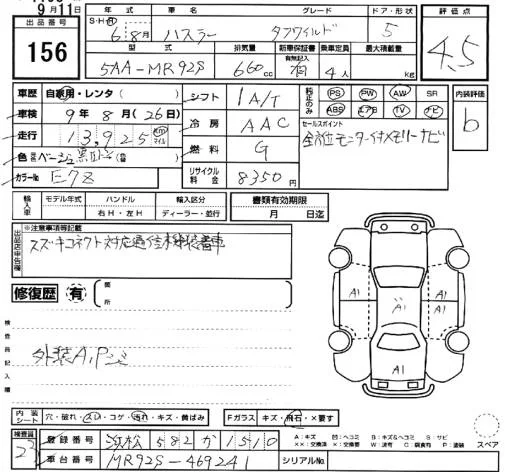 9月11日
出品番号 156
年式 車名 グレード ドア・形状 評価点
S・H・R 6年8月 ハスラー タフワイルド 5 4.5
型式 排気量 新車保証書 乗車定員 最大積載量
有無記入
5AA-MR92S 660cc 有 4人 kg
車歴 自家用・レンタ
車検 9年 8月(26日)
走行 13,925 Km マイル
色 ベージュ黒
カラーNo E7Z
シフト IA/T
冷房 AAC
燃料 G
リサイクル料金 8350円
純正のみ PS PW AW SR
ABS エアB TV ナビ
内装評価 b
セールスポイント
全方位モニター付メモリーナビ
輸入車 モデル年式 ハンドル 輸入区分
右H・左H ディーラー・並行
書類有効期限
月 日迄
出品店申告欄
※注意事項等記載
スズキコネクト対応通信機装着車
修復歴 有 箇所
検査員記入欄
外装A,Pジ
A1
A1 A1
A1
内装シート 穴・破れ・スレ・コゲ・汚れ・キズ・黄ばみ Fガラス キズ・飛石・×要す
検査員 22
登録番号 浜松 582 か 1510
車台番号 MR92S-469241 シリアルNo.
A:キズ U:凹ヘコミ B:キズ&ヘコミ S:サビ
XX:交換済 X:要交換 W:波有 C:腐食有 P:塗装
スペア